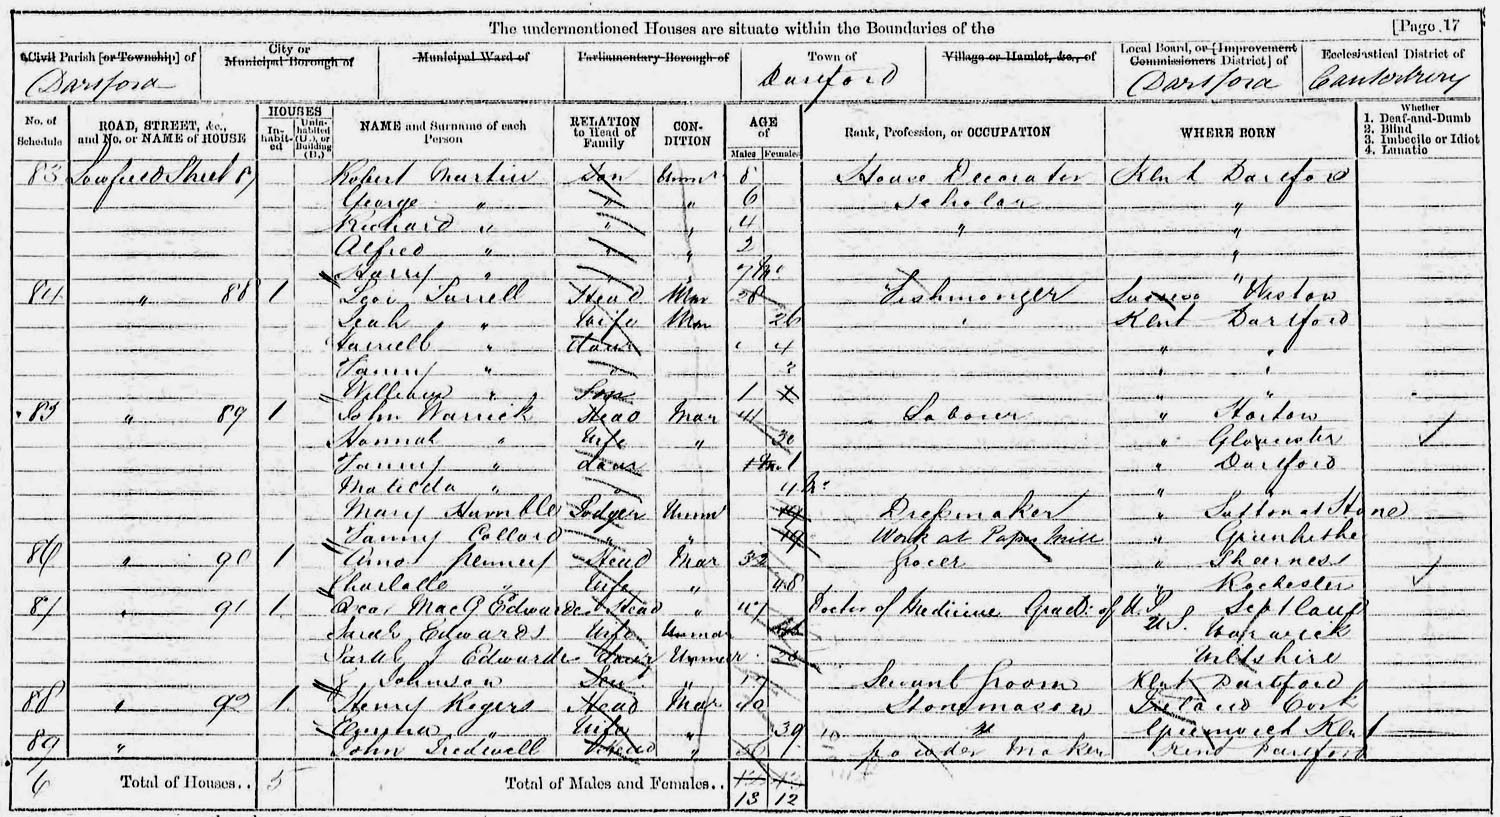 The undermentioned Houses are situate within the Boundaries of the [Page 17
Civil Parish [or Township] of City or Municipal Borough of Municipal Ward of Parliamentary Borough of Town of Village or Hamlet, &c., of Local Board, or [Improvement Commissioners District] of Ecclesiastical District of
Dartford Dartford Dartford Canterbury
No. of Schedule ROAD, STREET, &c., and No. or NAME of HOUSE HOUSES Inhabited Uninhabited (U.), or Building (B.) NAME and Surname of each Person RELATION to Head of Family CONDITION AGE of Males Females Rank, Profession, or OCCUPATION WHERE BORN Whether 1. Deaf-and-Dumb 2. Blind 3. Imbecile or Idiot 4. Lunatic
83 Lowfield Street 87 Robert Martin Son Unmr 8 House Decorator Kent Dartford
George " " " 6 Scholar "
Richard " " " 4 " "
Alfred " " " 2 "
Harry " " 7 Mo "
84 " 88 1 Levi Head Mar 28 Fishmonger
Leah " Wife Mar 26 Kent Dartford
" daur 4 " "
Fanny " " " " "
William " Son 1 " "
85 " 89 1 John Warrick Head Mar 41 Labourer " Horton
Hannah " Wife " 30 " Gloucester
Fanny " daur 1 " Dartford
Matilda " 4 Mo " "
Mary Humble Lodger Unmr 19 Dressmaker " Sutton at Hone
Fanny Collard " " 19 Work at Paper Mill " Greenhithe
86 " 90 1 Amos Head Mar 32 Grocer " Sheerness
Charlotte " Wife " 48 " Rochester
87 " 91 1 Oscar MacG Edwards Head " 47 Doctor of Medicine Grad: of U.S. Scotland
Sarah Edwards Wife U.S. Warwick
Sarah J Edwards daur Unmar 20 Wiltshire
Johnson " 17 Servant Groom Kent Dartford
88 " 92 1 Henry Rogers Head Mar 40 Stonemason Ireland Cork
Emma " Wife " 39 Greenwich Kent
89 " John Tredwell Head " powder Maker Kent Dartford
6 Total of Houses.. 5 Total of Males and Females.. 12 13
13 12